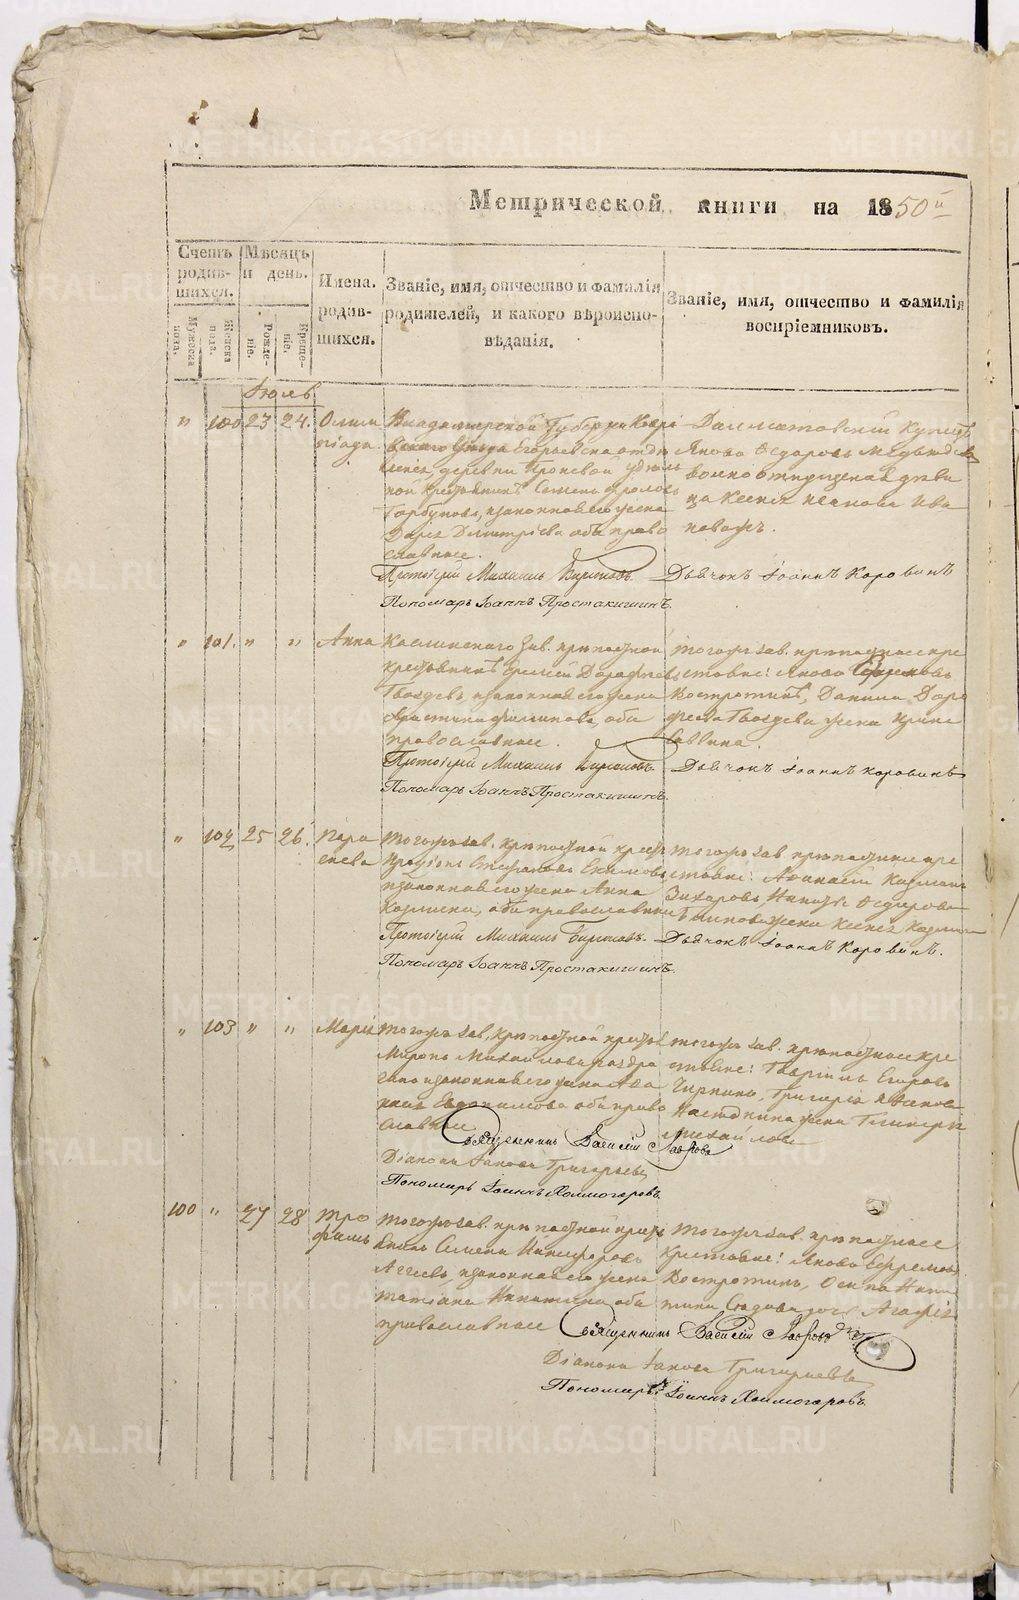 Метрической книги на 1850й
Счетъ родив-шихся.
Мѣсяцъ и день.
Имена. родив-шихся.
Званіе, имя, отчество и фамилія родителей, и какого вѣроиспо-вѣданія.
Званіе, имя, отчество и фамилія воспріемниковъ.
Мужеска пола.
Женска пола.
Рожде-ніе.
Креще-ніе.
Іюль
" 100 23 24.
Олим
піада.
Владимирской Губерніи Ковро
деревни
ной крестьянинъ Семенъ Фролов
Горбуновъ, и законная его жена
Дарья Димитріева оба право
славные.
Далматовскій Купецъ
Яковъ Федоровъ
вольноотпущенная дѣви
ца Ксенія Ива
нова.
Протоіерей Михаилъ Бирюковъ. Дьячокъ Іоаннъ Коровинъ
Пономарь Іоаннъ Простакишинъ.
" 101. " "
Анна
Каслинскаго Зав. крѣпостной
крестьянинъ
Гвоздевъ, и законная его жена
Христина Филипова, оба
православные.
Тогожъ зав. крѣпостные кре
стьяне: Яковъ Ефремовъ
Костротинъ, Данила Доро
феева Гвоздева жена Ирина
Саввина.
Протоіерей Михаилъ Бирюковъ. Дьячокъ Іоаннъ Коровинъ
Пономарь Іоаннъ Простакишинъ.
" 102 25 26.
Пара
скева
Тогожъ зав. крѣпостной крест
Стефановъ Екимовъ
и законная его жена Анна
Козмина, оба православные
Тогожъ зав. крѣпостные кре
стьяне: Афанасій Козминъ
Захаровъ, Никиты Федорова
жена Ксенія Козмина
Протоіерей Михаилъ Бирюковъ. Дьячокъ Іоаннъ Коровинъ.
Пономарь Іоаннъ Простакишинъ.
" 103 " "
Марія
Тогожъ зав. крѣпостной крестья
Миронъ Михайловъ
и законная его жена Афа
насія Евдокимова оба право
славные
Тогожъ зав. крѣпостные кре
стьяне: Гавріилъ Егоровъ
Чиркинъ, Григорія Яковлев
жена Гликерія
Михайлова
Священникъ Василій Лавровъ
Діаконъ Іаковъ Григорьевъ
Пономарь Іоаннъ Холмогоровъ.
100 " 27 28
Тро
фимъ
Тогожъ зав. крѣпостной кресть
янинъ Семенъ Никифоровъ
Агѣевъ, и законная его жена
Татіана Никитина оба
православные
Тогожъ зав. крѣпостные
крестьяне: Яковъ Ефремовъ
Костротинъ, Осипа Ники
тина Сѣдова дочь Агафія
Священникъ Василій Лавровъ
Діаконъ Іаковъ Григорьевъ
Пономарь Іоаннъ Холмогоровъ.
METRIKI.GASO-URAL.RU